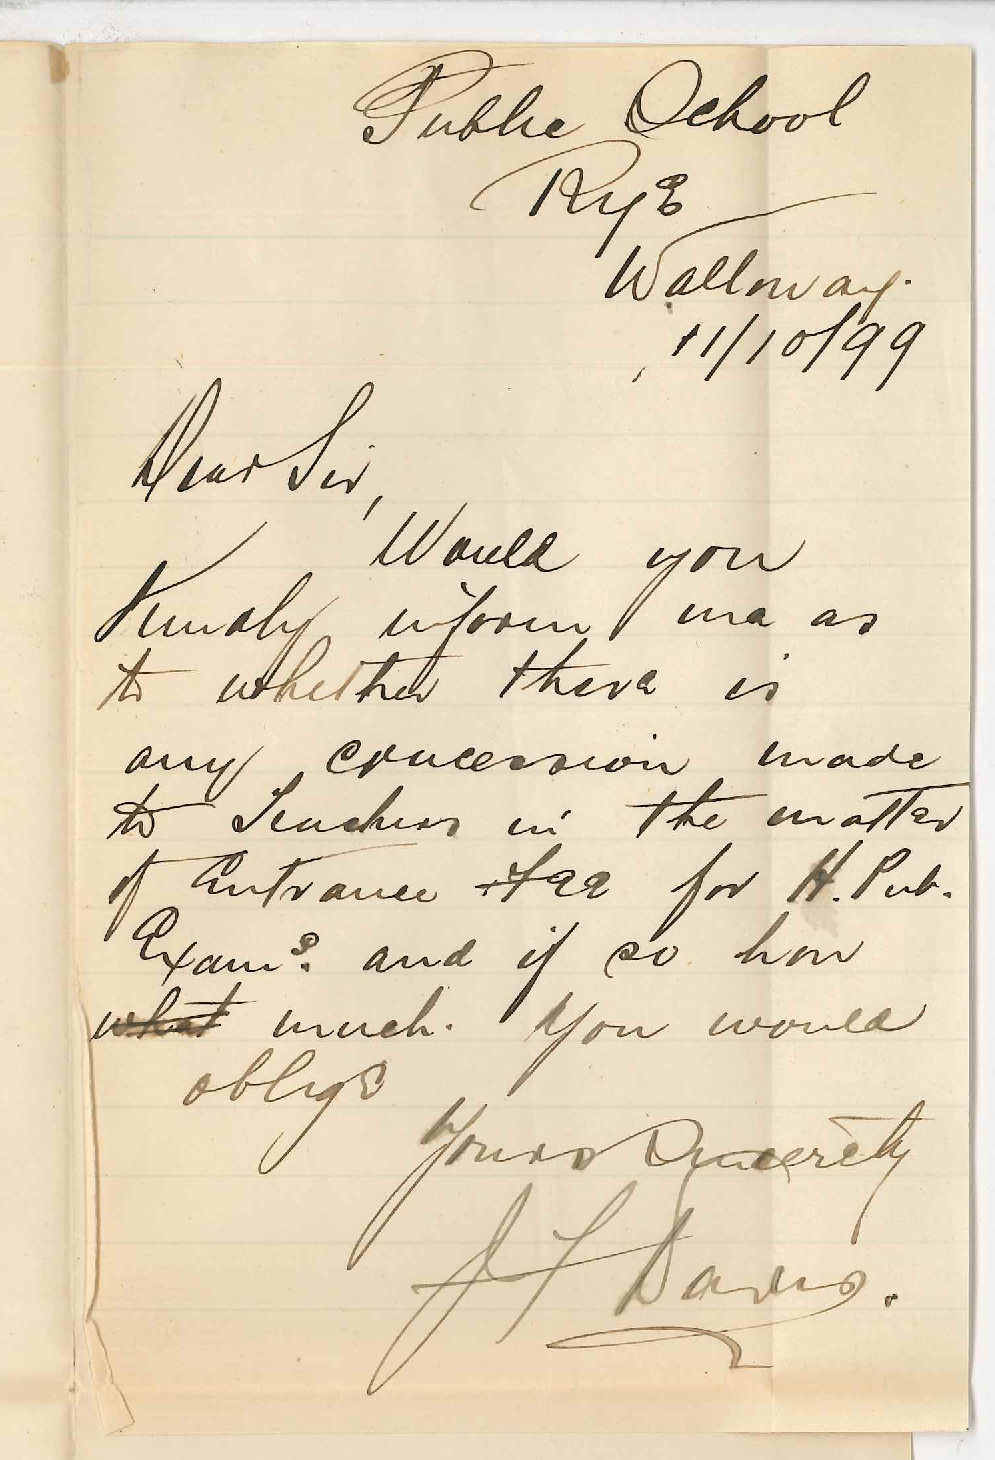 Public School
Rye
Walloway.
11/10/99
Dear Sir,
Would you
kindly inform me as
to whether there is
any concession made
to Teachers in the matter
of Entrance Fee for H. Pub.
Exams. and if so how
what much. You would
oblige
Yours Sincerely
J F Davis.